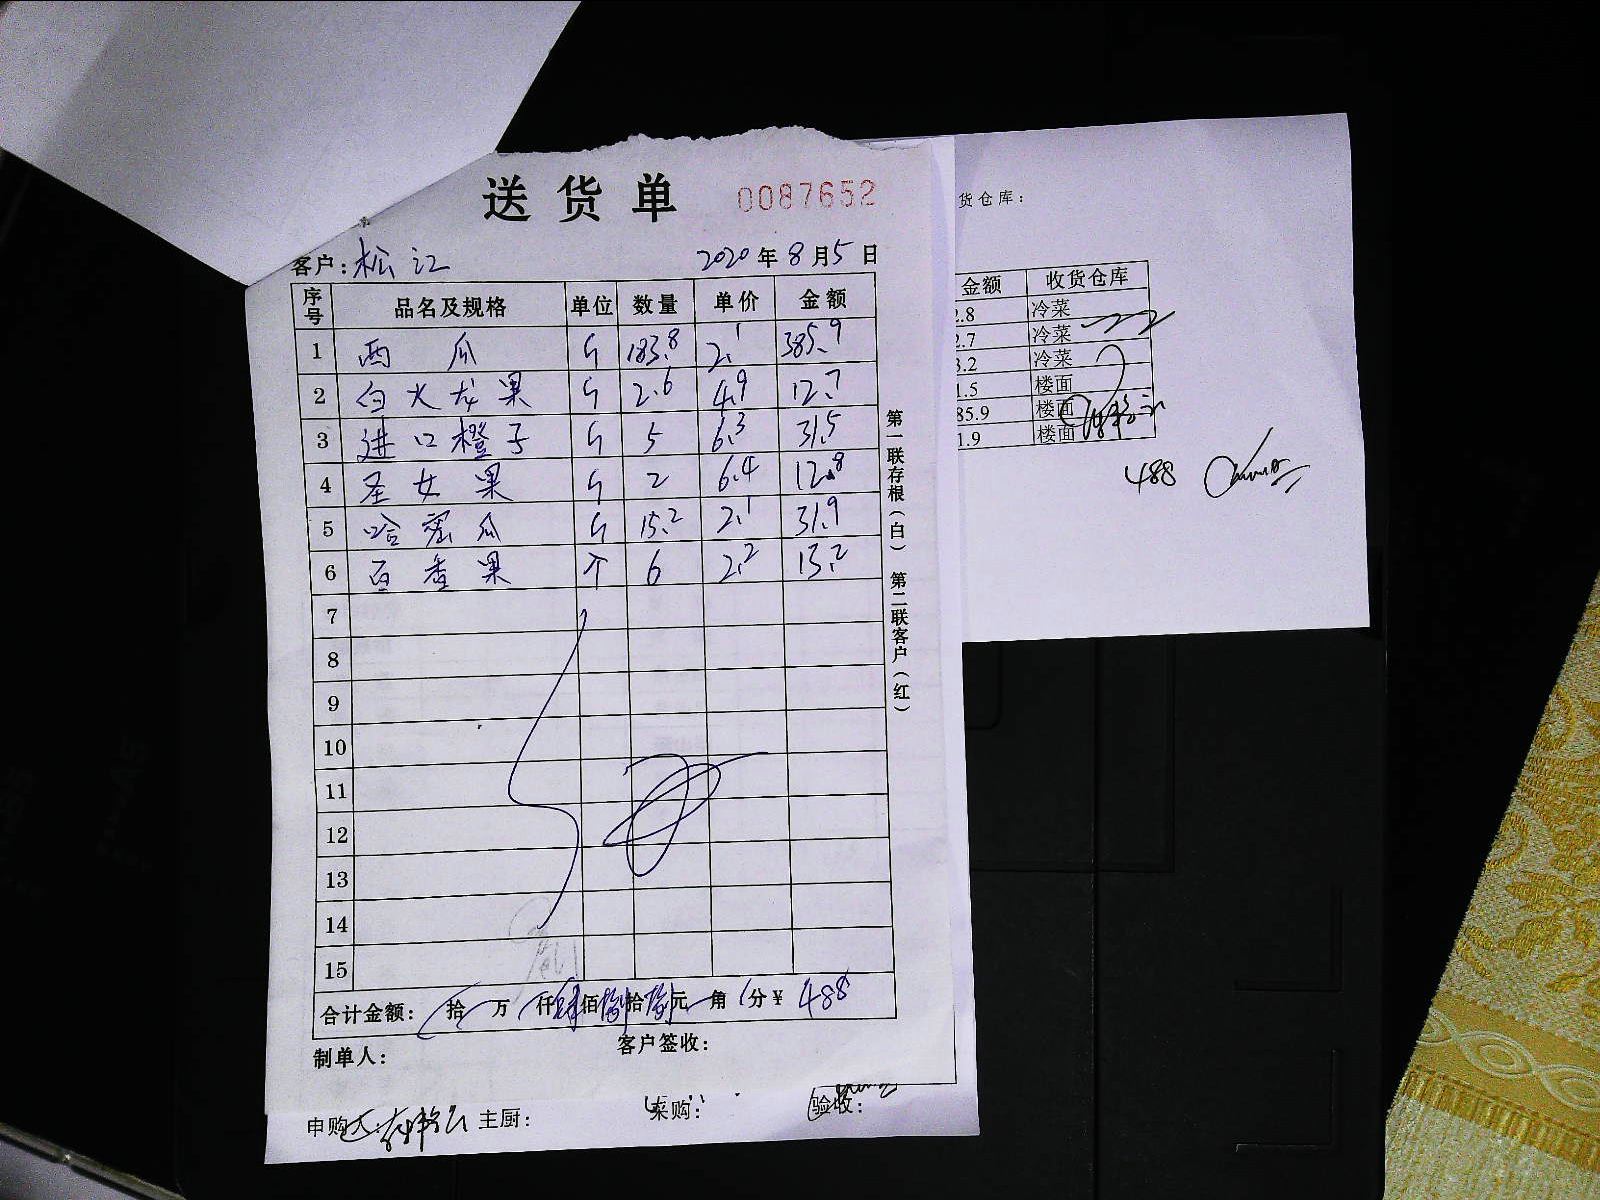 送货单 0087652
客户：松江 2020年8月5日
序号 品名及规格 单位 数量 单价 金额
1 西瓜 斤 183.8 2.1 385.9
2 白火龙果 斤 2.6 4.9 12.7
3 进口橙子 斤 5 6.3 31.5
4 圣女果 斤 2 6.4 12.8
5 哈密瓜 斤 15.2 2.1 31.9
6 百香果 个 6 2.2 13.2
7
8
9
10
11
12
13
14
15
合计金额： 拾 万 仟肆佰捌拾捌元 角 分￥ 488
制单人： 客户签收：
第一联存根（白） 第二联客户（红）
申购人： 主厨： 采购： 验收：
货仓库：
金额 收货仓库
2.8 冷菜
2.7 冷菜
3.2 冷菜
1.5 楼面
85.9 楼面
1.9 楼面
488